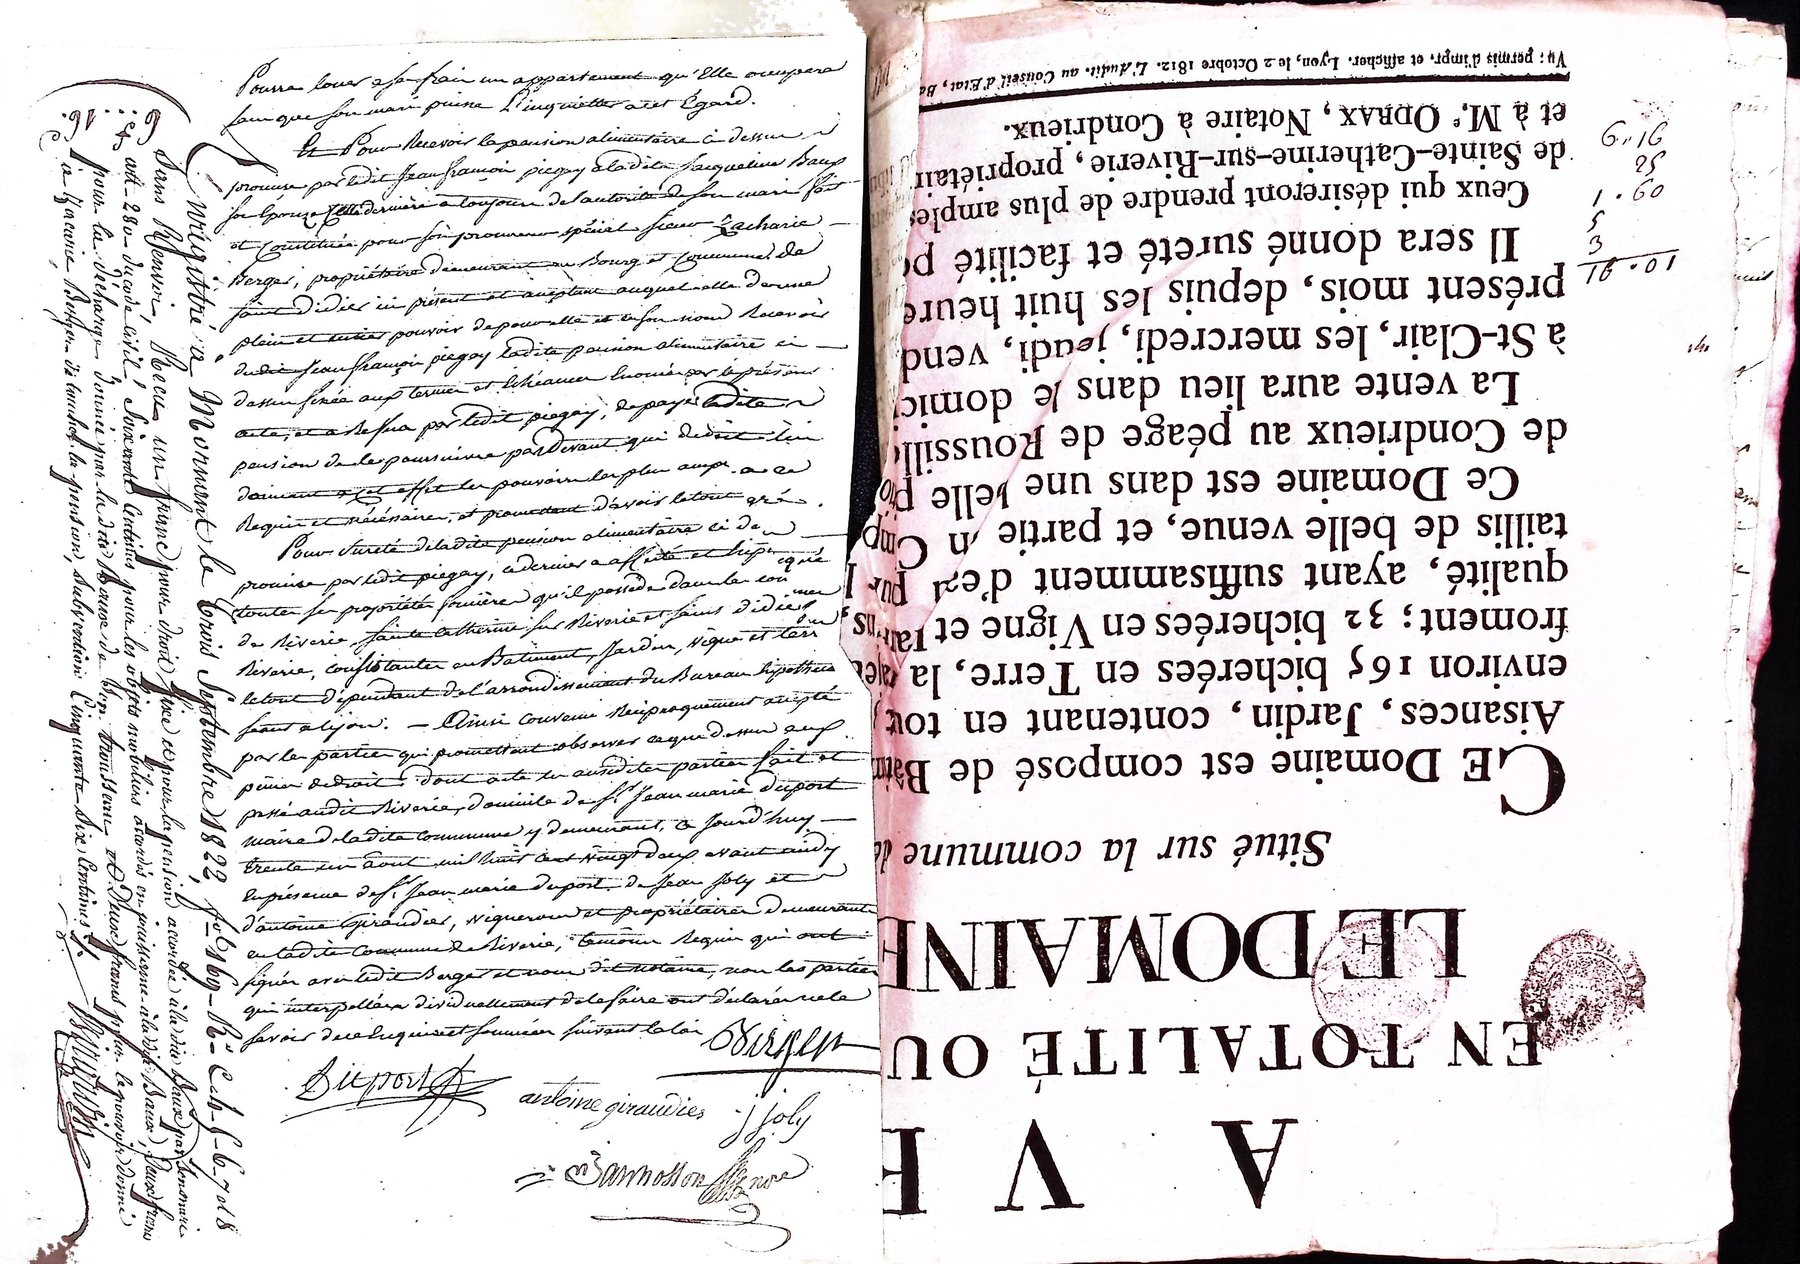 Pourra louer a ses frais un appartement qu'Elle occupera
sans que son mari puisse L'inquietter a cet Egard.
Et Pour Recevoir la pension alimentaire ci dessus
promise par ledit Jean françois piegay a ladite Jacqueline Baux
son Epouze Cette derniere a toujours de l'autorité de son mari fait
et Constitué pour son procureur spécial sieur Zacharie
Berger, propriétaire demeurant au Bourg et Commune de
saint didier ici présent et acceptant auquel elle donne
plein et entier pouvoir de pour elle et en son nom Recevoir
dudit Jean françois piegay ladite pension alimentaire ci
dessus fixée aux termes et Echéances Enoncés par le présent
acte, et a Refus par ledit piegay, de payer ladite
pension de le poursuivre pardevant qui de droit lui
donnant a cet effet les pouvoirs les plus amples a ce
Requis et nécéssaires, et promettant d'avoir le tout gré.
Pour sureté de ladite pension alimentaire ci de
promise par ledit piegay, ce dernier a affecté et hipo
toutes ses propriétés foncières qu'il possède dans les com
de Riverie, sainte Catherine sur Riverie et saint didier
Riverie, consistantes en Batiment, Jardin, vigne et terr
le tout dépendant de l'arrondissement du Bureau
séant a lyon. — Ainsi convenu Réciproquement accepté
par les parties qui promettent observer ce que dessus aux
peines de droit: dont acte
passé audit Riverie, domicile de Sr. Jean marie duport
maire de ladite commune y demeurant, ce Jourd'huy
trente un aout mil huit cent vingt deux avant midy
En présence de Sr. Jean marie duport, de Jean Joly et
d'antoine Giraudier, vignerons et propriétaires demeurants
en ladite Commune de Riverie, témoins Requis qui ont
signés avec ledit Berger et nous dit notaire, non les parties
qui interpellées individuellement de le faire ont déclaré ne le
savoir de ce Enquises et sommées suivant la loi
Berger
Duport
antoine giraudier
j joly
Enrégistré à Mornant le trois Septembre 1822, fo. 169. Ro. C. 4. 5. 6. 7 et 8
Sans Renvoi, Recu un franc pour droit fixe et pour la pension accordée à la dite Baux par
art. 280 du code civil, Soixante Centimes pour les objets mobiliers accordés en jouissance à la dite Baux, Deux francs
pour la décharge donnée par la dite Baux de son trousseau et Deux francs pour le pouvoir donné
à Zacarie Berger de toucher la pension, Subvention Cinquante six Centimes
A VE
EN TOTALITÉ OU
LE DOMAINE
Situé sur la commune de
CE Domaine est composé de Bâtim
Aisances, Jardin, contenant en tout
environ 165 bicherées en Terre, la
froment; 32 bicherées en Vigne et
qualité, ayant suffisamment d'eau pur
taillis de belle venue, et partie
Ce Domaine est dans une belle
de Condrieux au péage de Roussill
La vente aura lieu dans le domic
à St-Clair, les mercredi, jeudi, vend
présent mois, depuis les huit heure
Il sera donné sureté et facilité po
Ceux qui désireront prendre de plus amples
de Sainte-Catherine-sur-Riverie, propriétair
et à Me. ODRAX, Notaire à Condrieux.
Vu: permis d'impr. et afficher. Lyon, le 2 Octobre 1812. L'Audit. au Conseil d'Etat, Ba
6.16
25
1.60
5
3
16.01